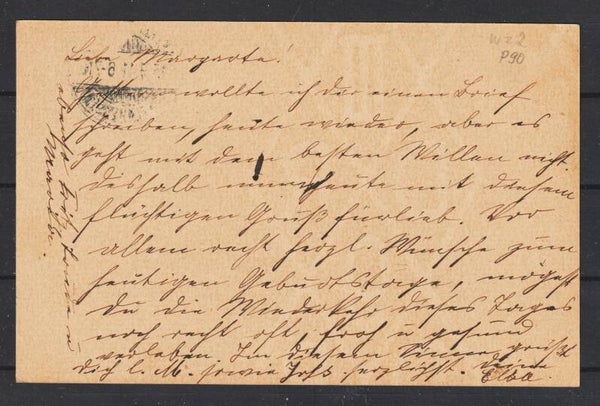 wz 2
P90
Liebe Margarete!
wollte ich dir einen Brief
schreiben, heute wieder, aber es
geht mit dem besten Willen nicht
deshalb nimm heute mit diesem
flüchtigen Gruß fürlieb. Vor
allem recht herzl. Wünsche zum
heutigen Geburtstage, mögest
Du die Wiederkehr dieses Tages
noch recht oft, froh u. gesund
verleben. In diesem Sinne grüßt
dich l. M. sowie herzlichst. Deine
Ella.